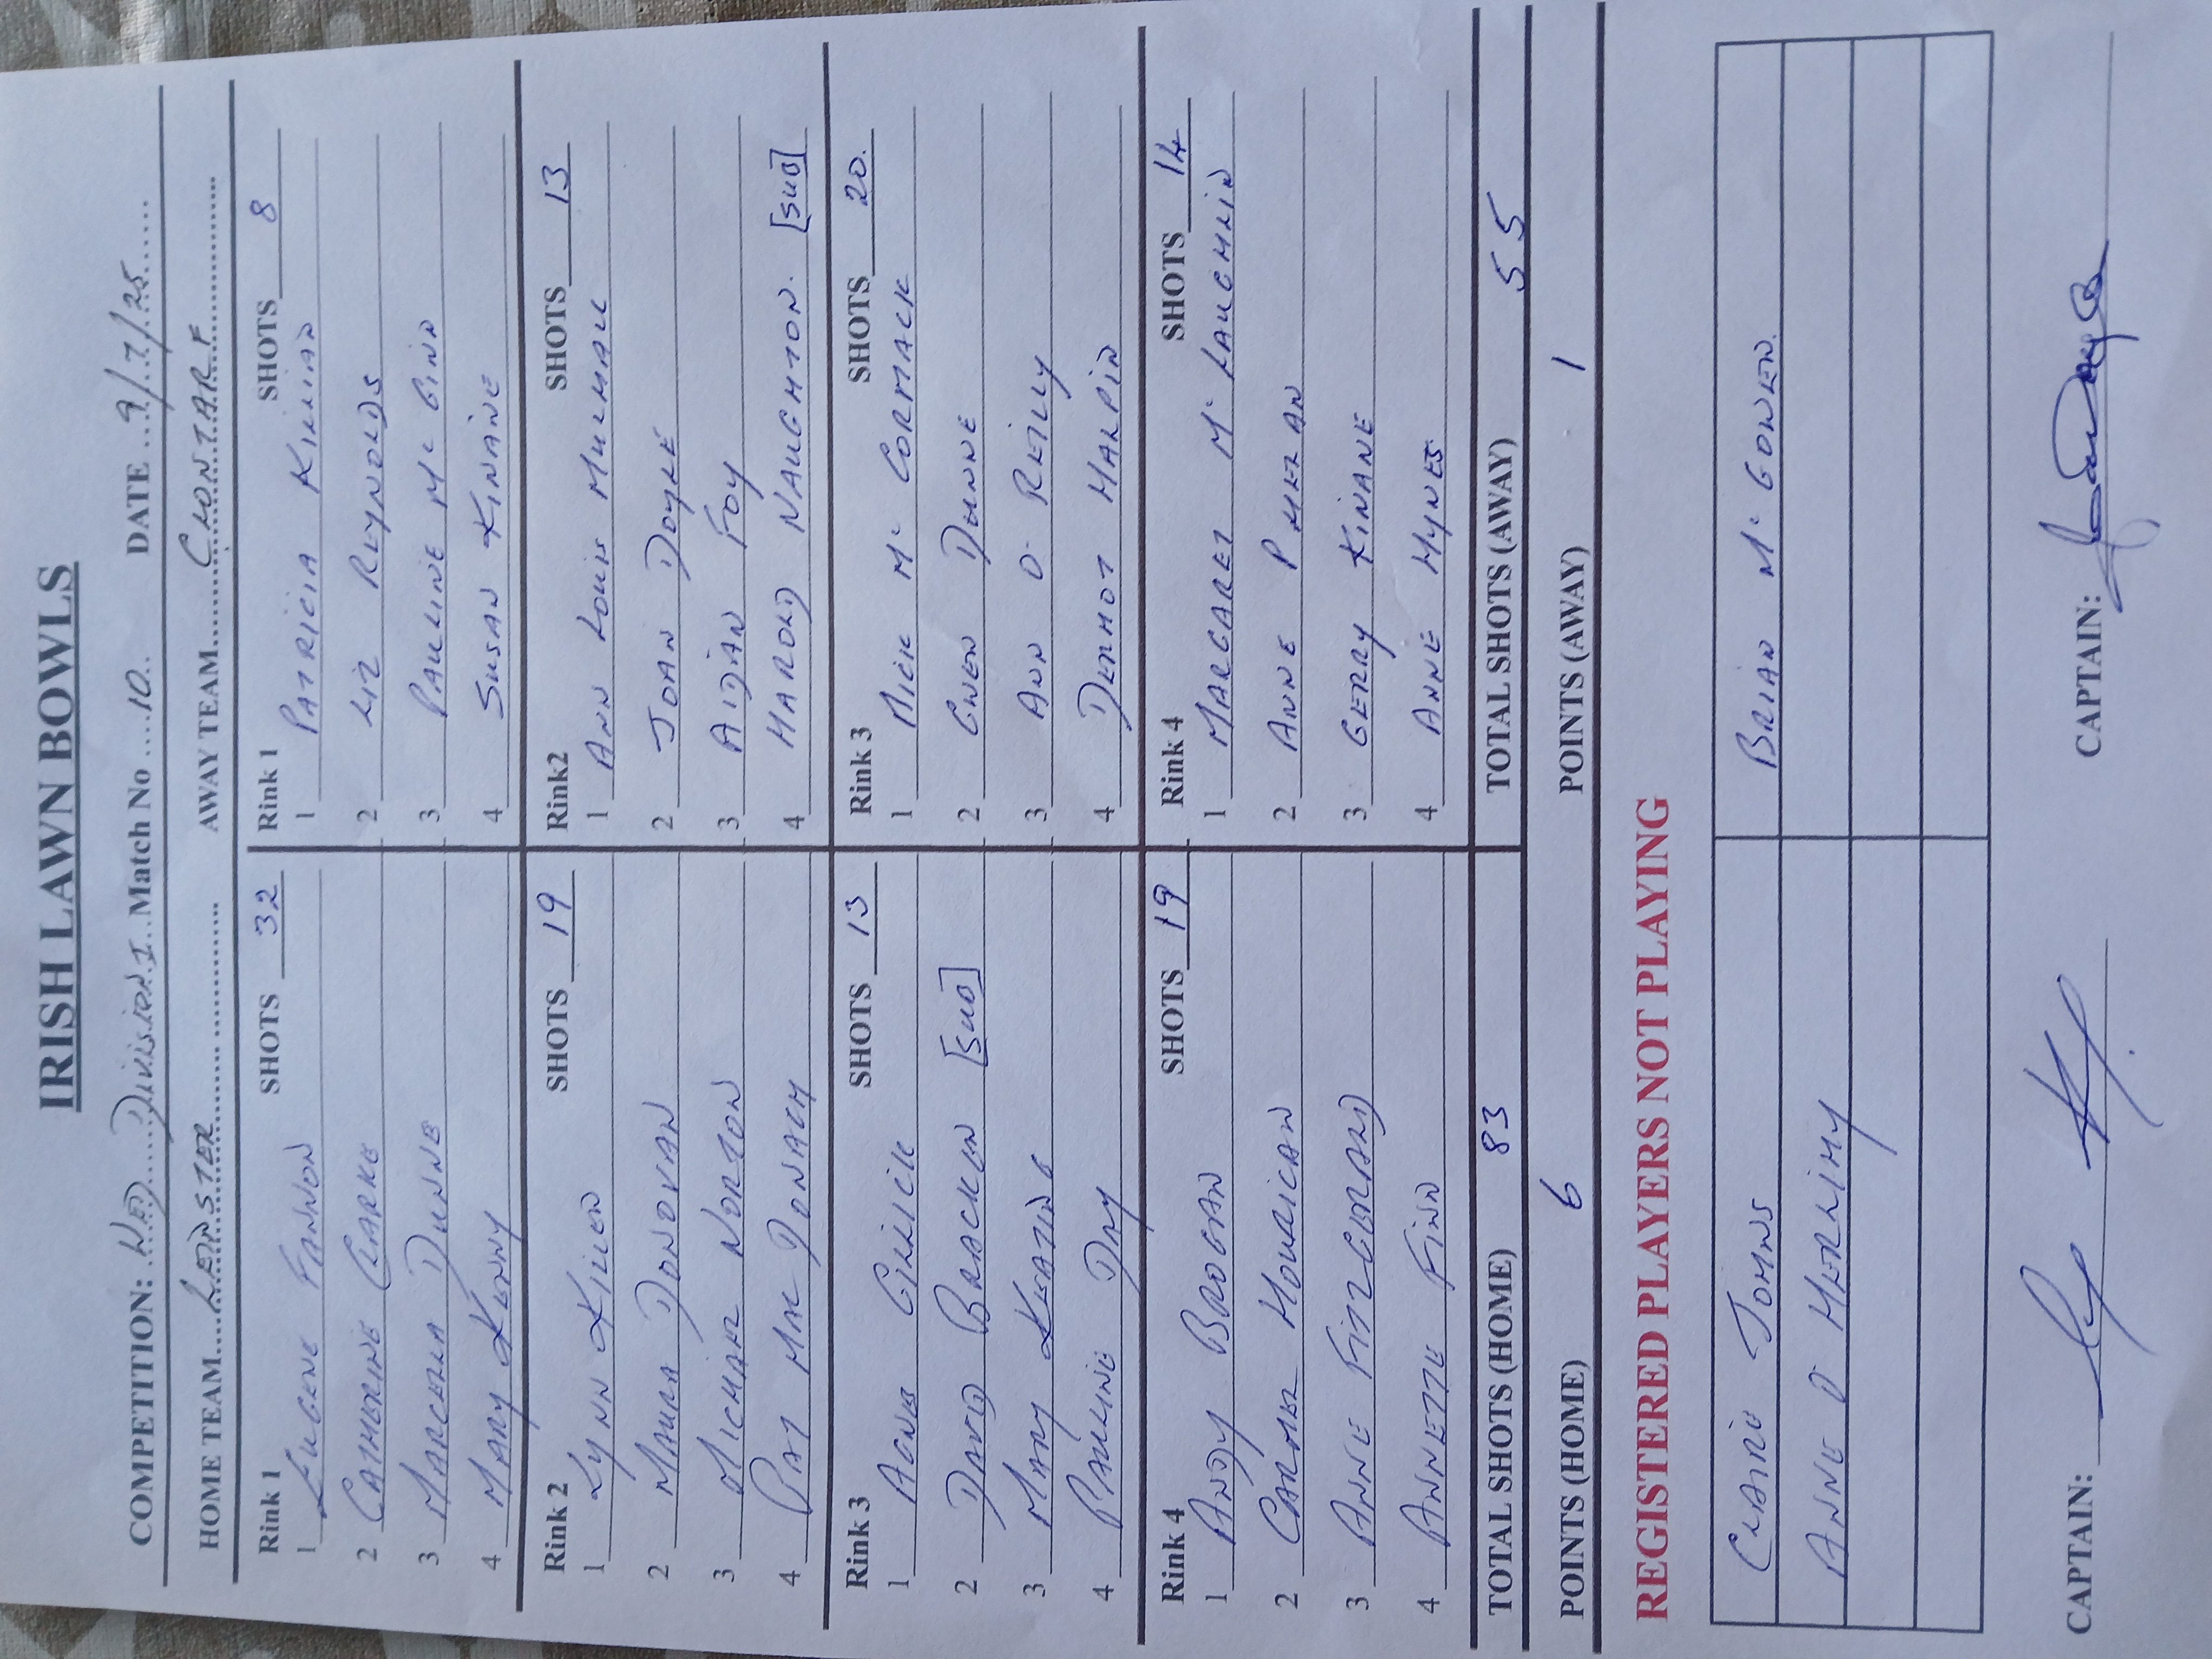 IRISH LAWN BOWLS
COMPETITION: WED DIVISION 1 Match No 10. DATE 9/7/25
HOME TEAM LEINSTER AWAY TEAM CLONTARF
Rink 1 SHOTS 32
1 EUGENE FANNON
2 CATHERINE CLARKE
3 MARCELLA DUNNE
4 MARY KENNY
Rink 1 SHOTS 8
1 PATRICIA KILLIAN
2 LIZ REYNOLDS
3 PAULINE Mc GINN
4 SUSAN KINANE
Rink 2 SHOTS 19
1 LYNN KILLEN
2 MAURA DONOVAN
3 MICHAEL NORTON
4 PAT MAC DONAGH
Rink2 SHOTS 13
1 ANN LOUIS MULHALL
2 JOAN DOYLE
3 AIDAN FOY
4 HAROLD NAUGHTON. [SUB]
Rink 3 SHOTS 13
1 AGNES GILLICK
2 DAVID BRACKEN [SUB]
3 MARY KEATING
4 PAULINE DAY
Rink 3 SHOTS 20.
1 MICK Mc CORMACK
2 GWEN DUNNE
3 ANN O REILLY
4 DERMOT HALPIN
Rink 4 SHOTS 19
1 ANDY BROGAN
2 CARMEL HOURICAN
3 ANNE FITZGERALD
4 ANNETTE FINN
Rink 4 SHOTS 14
1 MARGARET Mc LAUGHLIN
2 ANNE PHELAN
3 GERRY KINANE
4 ANNE HYNES
TOTAL SHOTS (HOME) 83 TOTAL SHOTS (AWAY) 55
POINTS (HOME) 6 POINTS (AWAY) 1
REGISTERED PLAYERS NOT PLAYING
CLAIRE JOHNS BRIAN Mc GOWEN.
ANNE O HERLIHY
CAPTAIN: CAPTAIN: